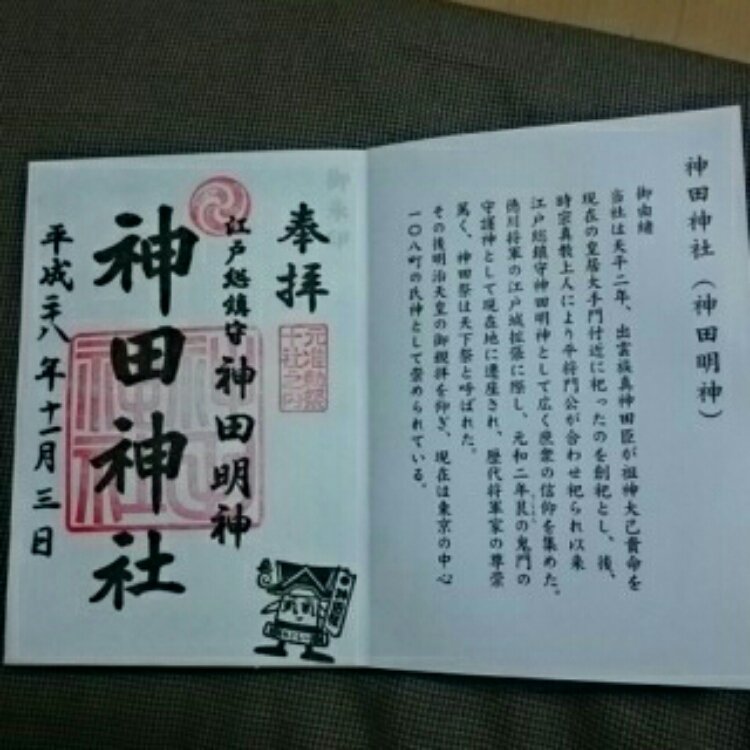 神田神社（神田明神）
御由緒
当社は天平二年、出雲族真神田臣が祖神大己貴命を
現在の皇居大手門付近に祀ったのを創祀とし、後、
時宗真教上人により平将門公が合わせ祀られ以来
江戸総鎮守神田明神として広く庶衆の信仰を集めた。
徳川将軍の江戸城拡張に際し、元和二年艮の鬼門の
守護神として現在地に遷座され、歴代将軍家の尊崇
篤く、神田祭は天下祭と呼ばれた。
その後明治天皇の御親拝を仰ぎ、現在は東京の中心
一〇八町の氏神として崇められている。
奉拝
元准勅祭
十社之内
江戸総鎮守 神田明神
神田神社
平成二十八年十一月三日